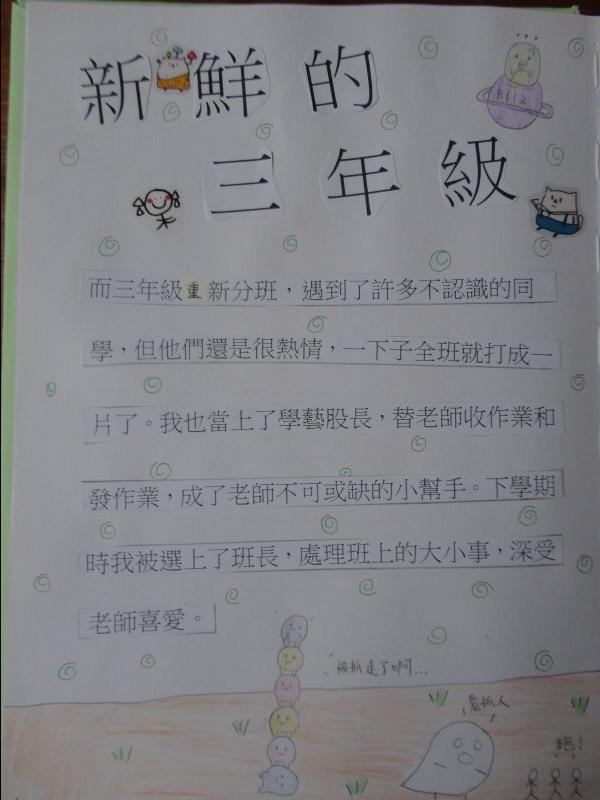 新鮮的
B612
三年級
而三年級重新分班，遇到了許多不認識的同
學，但他們還是很熱情，一下子全班就打成一
片了。我也當上了學藝股長，替老師收作業和
發作業，成了老師不可或缺的小幫手。下學期
時我被選上了班長，處理班上的大小事，深受
老師喜愛。
被抓走了啊...
鬼抓人
跑！